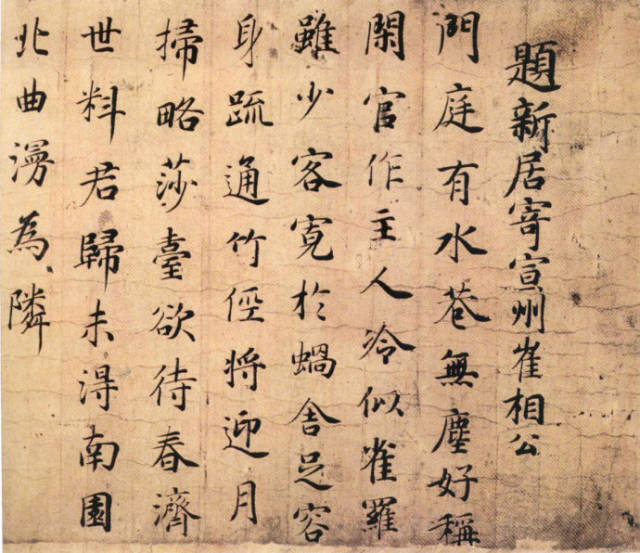 題新居寄宣州崔相公
門庭有水巷無塵好稱
閑官作主人冷似雀羅
雖少客寛於蝸舎足容
身踈通竹俓将迎月
掃略莎臺欲待春濟
世料君歸未淂南園
北曲謾為隣